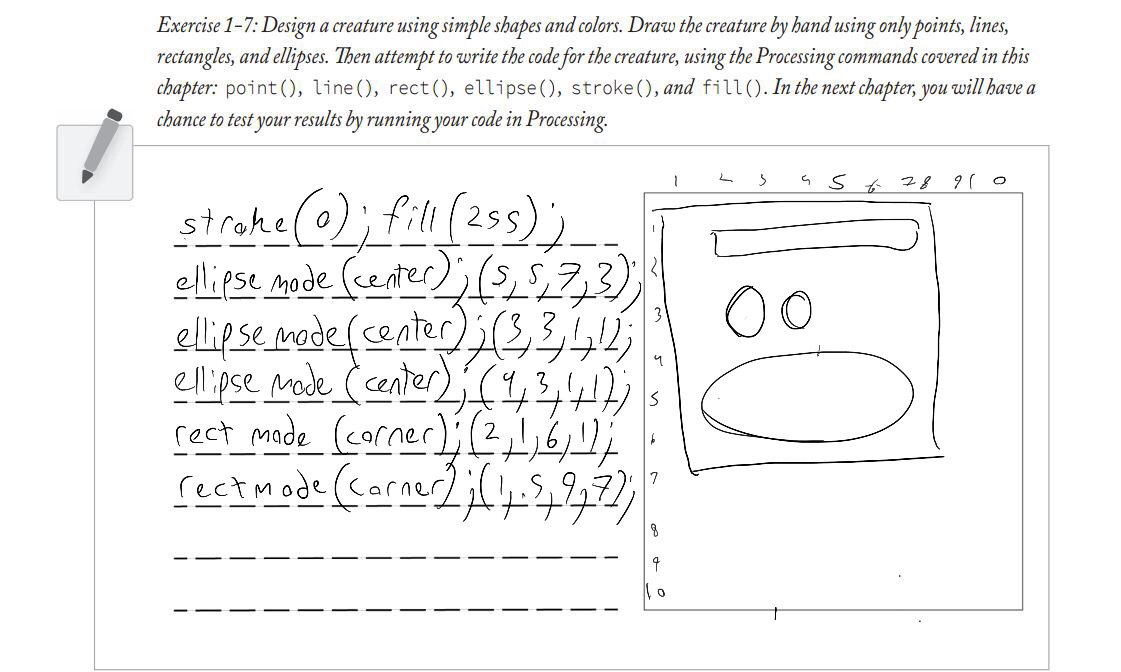 Exercise 1-7: Design a creature using simple shapes and colors. Draw the creature by hand using only points, lines,
rectangles, and ellipses. Then attempt to write the code for the creature, using the Processing commands covered in this
chapter: point(), line(), rect(), ellipse(), stroke(), and fill(). In the next chapter, you will have a
chance to test your results by running your code in Processing.
1 2 3 4 5 6 7 8 9 1 0
stroke(0); fill(255);
ellipse mode (center); (5, 5, 7, 3);
ellipse mode (center); (3, 3, 1, 1);
ellipse mode (center); (4, 3, 1, 1);
rect mode (corner); (2, 1, 6, 1);
rect mode (corner); (1, .5, 9, 7);
1
2
3
4
5
6
7
8
9
10